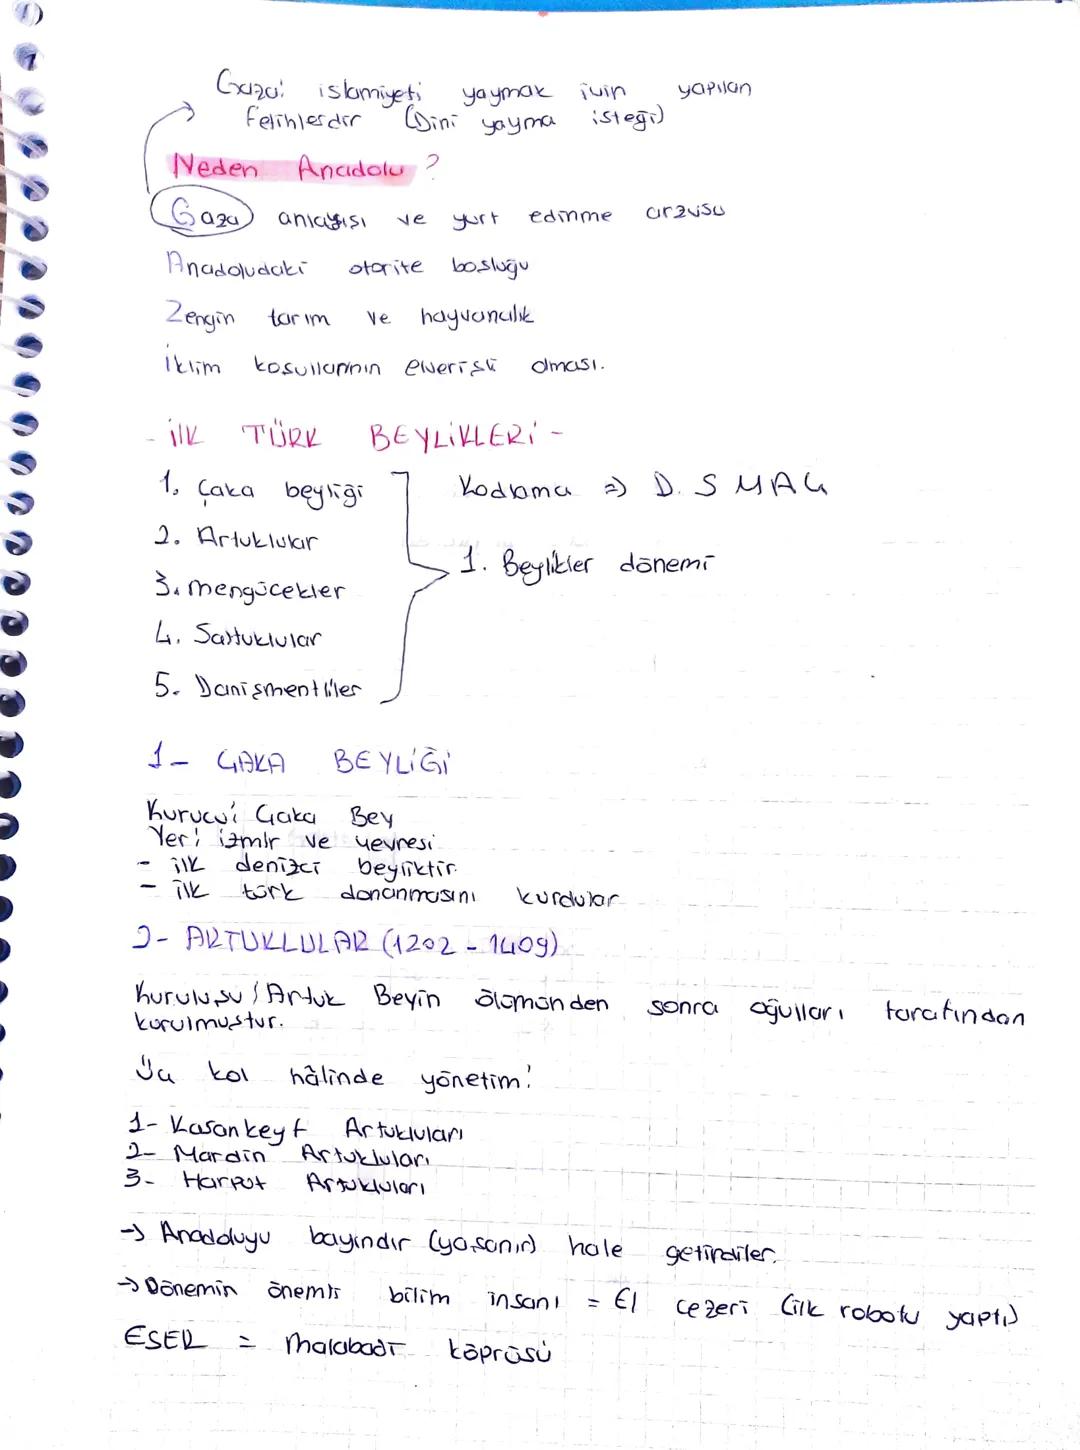 Gaza: islamiyeti yaymak için yapılan
fetihlerdir (Dini yayma isteği)
Neden Anadolu?
Gaza anlayışı ve yurt edinme arzusu
Anadoludaki otorite boşluğu
Zengin tarım ve hayvancılık
İklim koşullarının elverişli olması.
- İLK TÜRK BEYLİKLERİ -
1. Çaka beyliği
Kodlama => D. S M A Ç
2. Artuklular
1. Beylikler dönemi
3. mengücekler
4. Saltuklular
5. Danişmentliler
1- ÇAKA BEYLİĞİ
Kurucu: Çaka Bey
Yer: izmir ve çevresi
- ilk denizci beyliktir.
- ilk türk donanmasını kurdular
2- ARTUKLULAR (1202 - 1409)
Kuruluşu: Artuk Beyin ölümünden sonra oğulları tarafından
kurulmuştur.
Üç kol hâlinde yönetim:
1- Hasankeyf Artukluları
2- Mardin Artukluları
3- Harput Artukluları
-> Anadoluyu bayındır (yaşanır) hale getirdiler.
-> Dönemin önemli bilim insanı = El cezeri (ilk robotu yaptı)
ESER = malabadi köprüsü